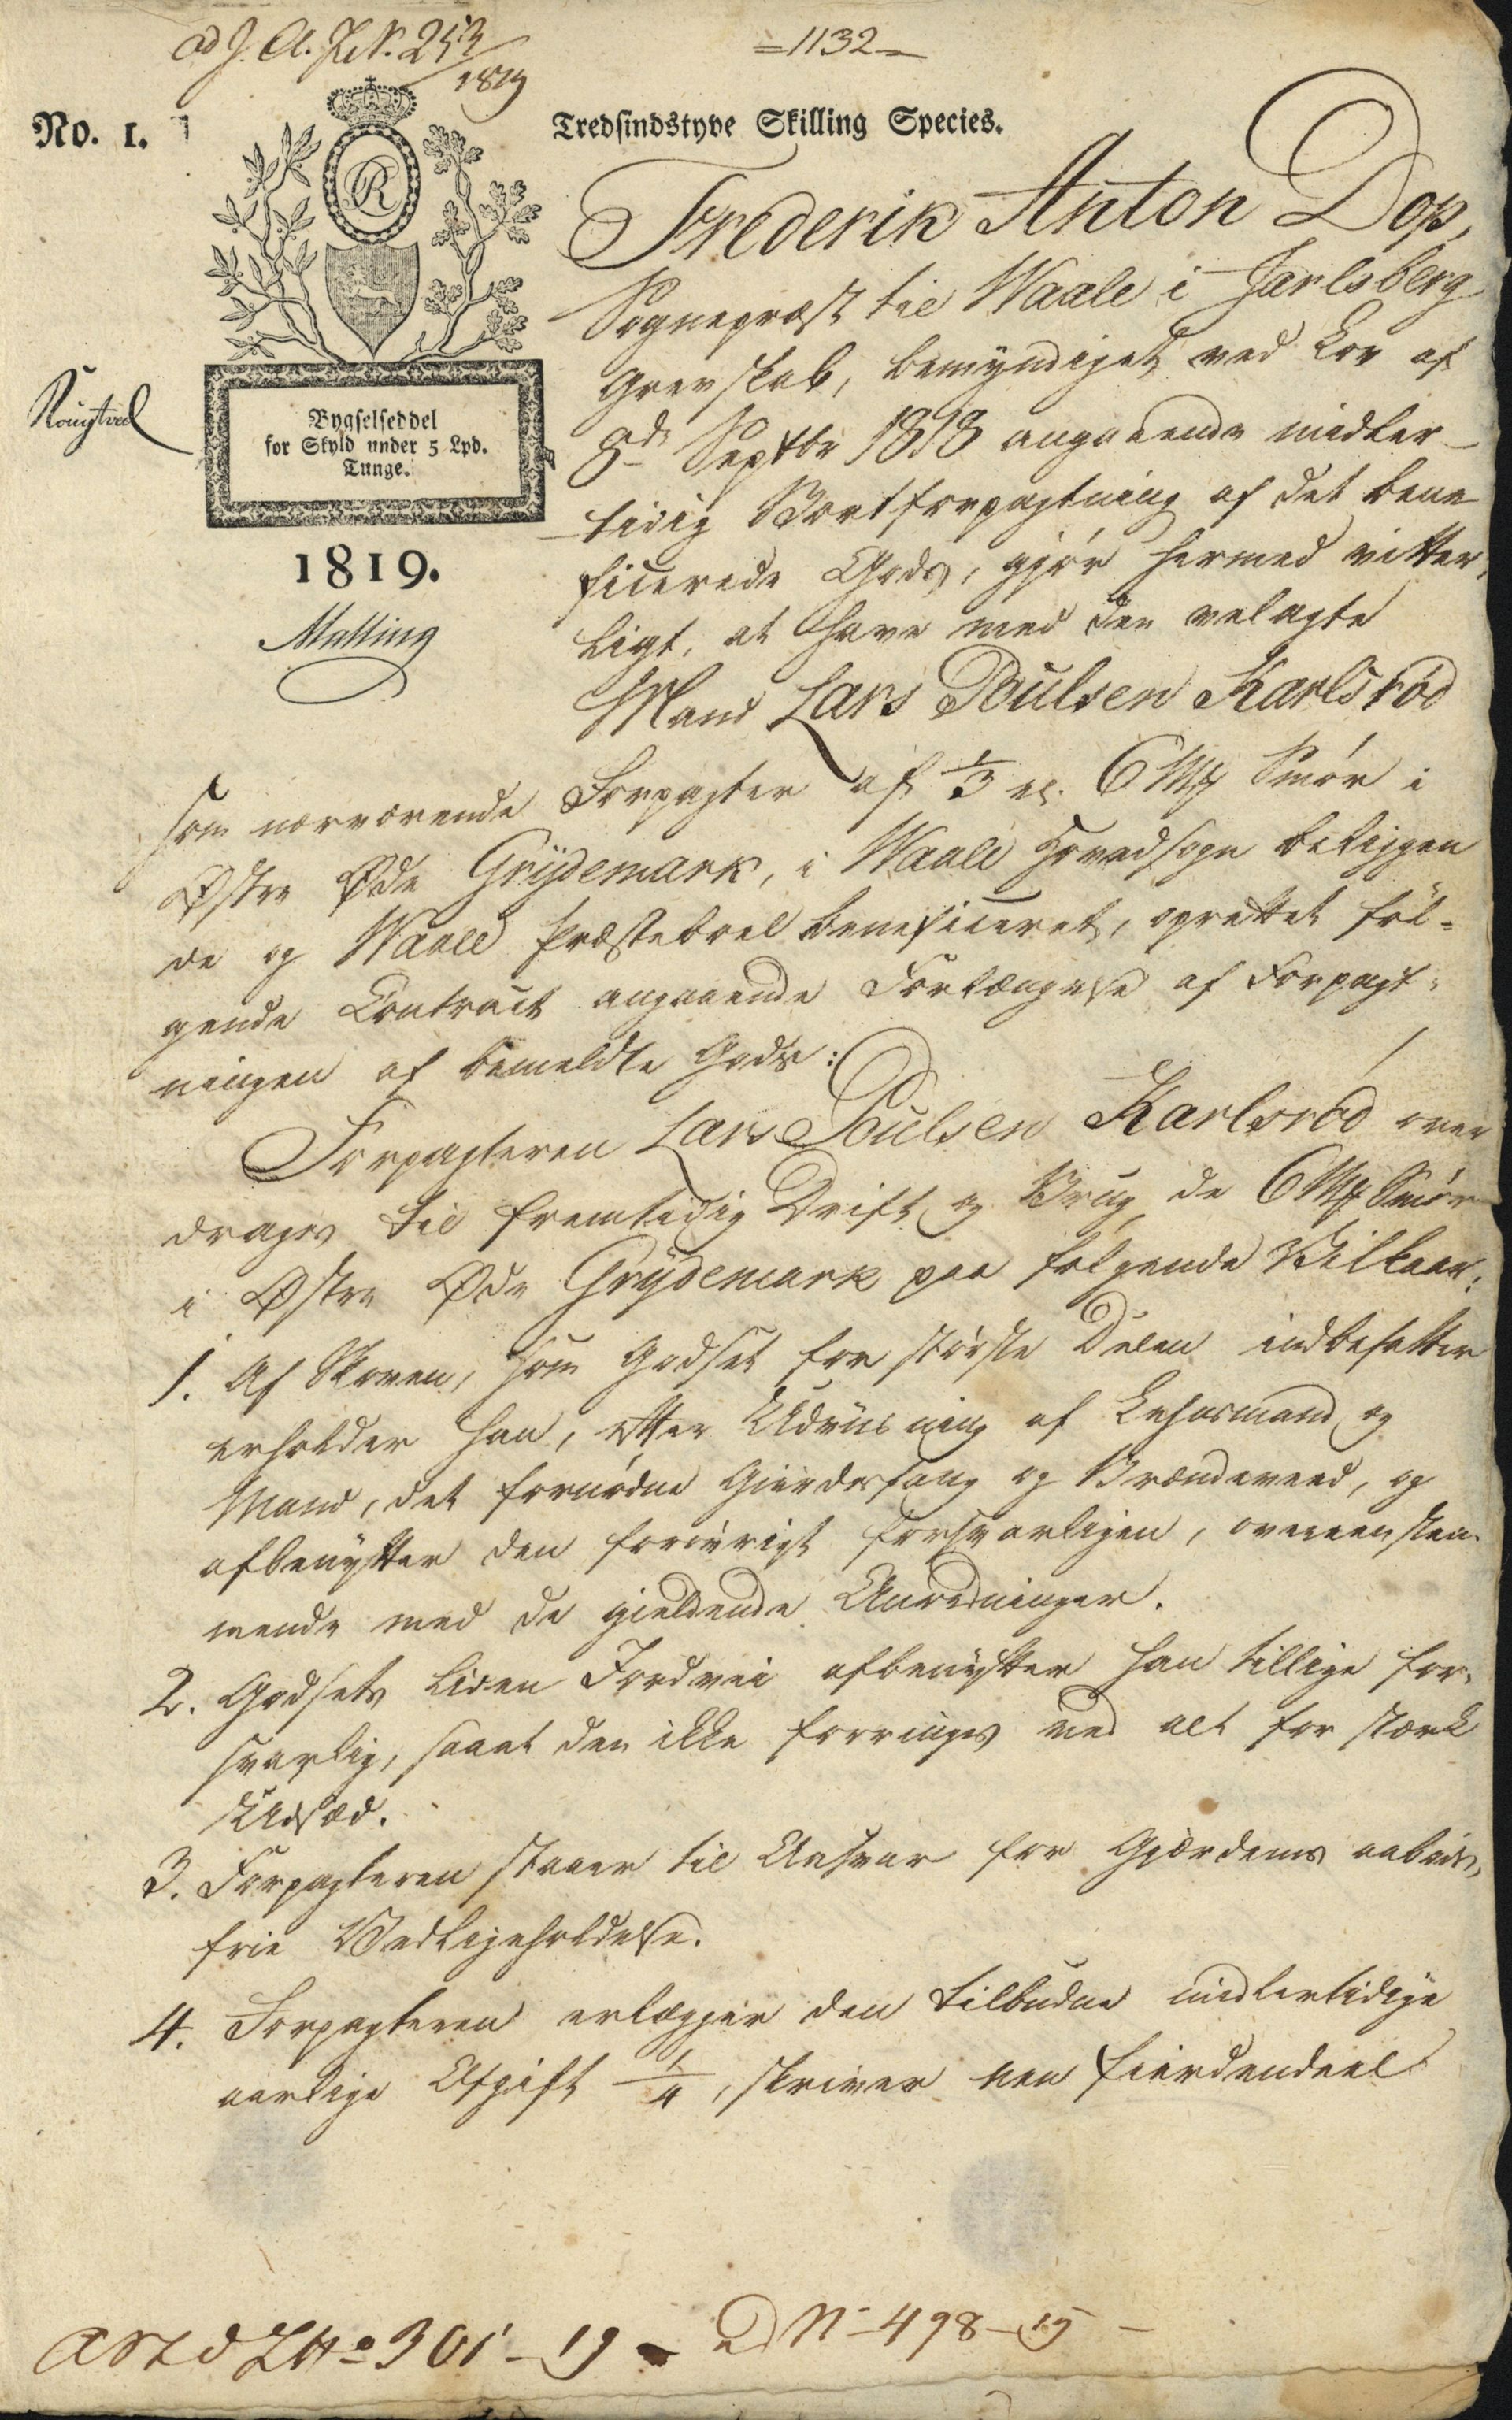 ad J. C. J. N. 253/1819
=1132=
No. 1.
Tredsindstyve Skilling Species.
R
Bygselseddel
for Skyld under 5 Lpd.
Tunge.
1819.
Malling
Frederik Anton Dop,
Sognepræst til Waale i Jarlsberg
Grevskab, bemyndiget ved Lov af
8de Septbr 1818 angaaende midler-
tidig Bortforpagtning af det bene
ficerede Gods, gjør hermed vitter,
ligt, at have med den velagte
Mand Lars Poulsen Karlsrød
som nærværende Forpagter af 1/3 el. 6 Mk Smør i
Østre Øde Grydemark, i Waale Hovedsogn beliggen
de og Waale Præsteboel beneficeret, oprettet føl=
gende Contract angaaende Forlængelse af Forpagt=
ningen af bemeldte Gods:
Forpagteren Lars Poulsen Karlsrød over
drages til fremtidig Drift og Brug de 6 Mk Smør
i Østre Øde Grydemark paa følgende Vilkaar:
1. Af Skoven, som Godset for største Delen indbefatter
erholder han, efter Udviisning af Lehnsmand og
Mand, det fornødne Gierdesfang og Brændeveed, og
afbenytter den forøvrigt forsvarligen, overeenstem
mende med de gieldende Anordninger.
2. Godsets liden Jordvei afbenytter han tillige for=
svarlig, saaat den ikke forringes ved alt for stærk
Udsæd.
3. Forpagteren staaer til Ansvar for Gjærdernes aabods,
frie Vedligeholdelse.
4. Forpagteren erlægger den tilbudne midlertidige
aarlige Afgift 1/4, skriver een fierdendeel
No 301-19 - N 498-19 -